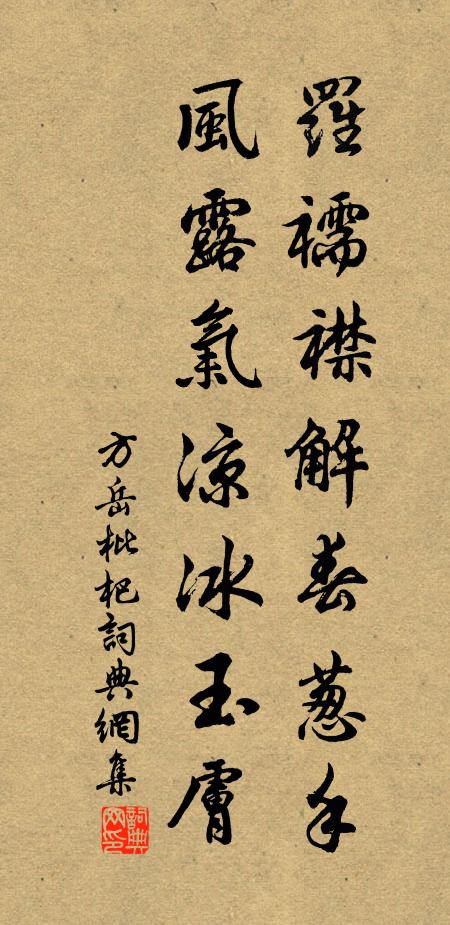 羅襦襟解春葱手
風露氣凉冰玉膚
方岳枇杷詞典網集
詞典网印